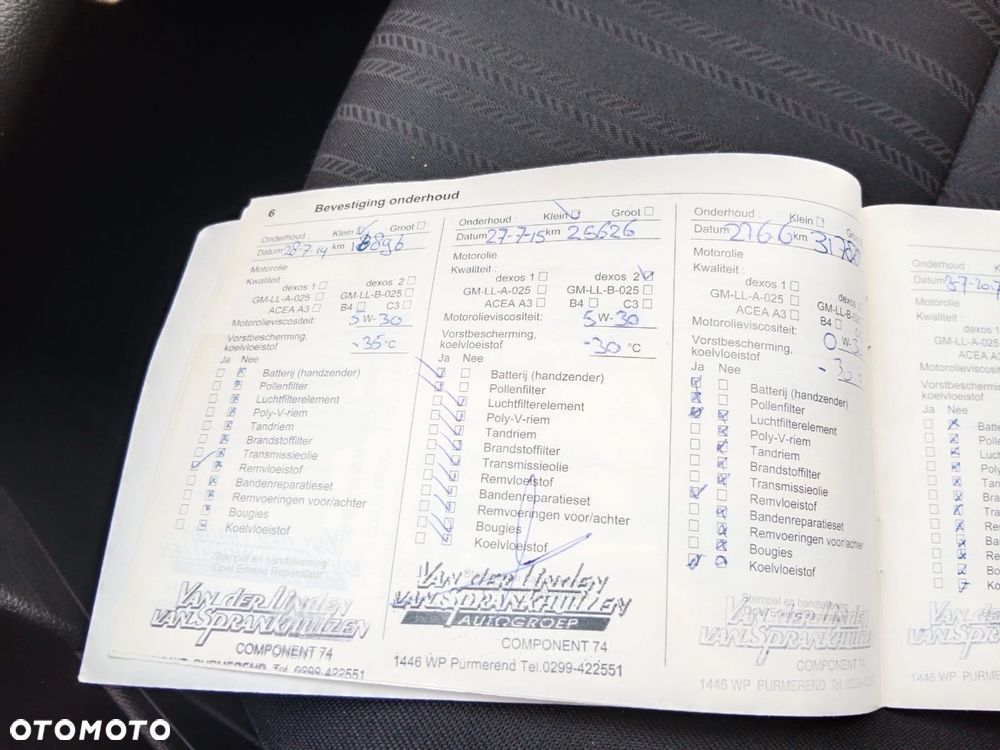 6 Bevestiging onderhoud
Onderhoud : Klein Groot
Datum 28-7-14 km
Motorolie
Kwaliteit :
dexos 1 dexos 2
GM-LL-A-025 GM-LL-B-025
ACEA A3 B4 C3
Motorolieviscositeit: 5 W-30
Vorstbescherming,
koelvloeistof -35 °C
Ja Nee
Batterij (handzender)
Pollenfilter
Luchtfilterelement
Poly-V-riem
Tandriem
Brandstoffilter
Transmissieolie
Remvloeistof
Bandenreparatieset
Remvoeringen voor/achter
Bougies
Koelvloeistof
Stempel en handtekening
Opel Erkend Reparateur
VAN DER LINDEN
VAN SPRANKHUIZEN
COMPONENT 74
PURMEREND Tel. 0299-422551
Onderhoud : Klein Groot
Datum 27-7-15 km 25626
Motorolie
Kwaliteit :
dexos 1 dexos 2
GM-LL-A-025 GM-LL-B-025
ACEA A3 B4 C3
Motorolieviscositeit: 5 W-30
Vorstbescherming,
koelvloeistof -30 °C
Ja Nee
Batterij (handzender)
Pollenfilter
Luchtfilterelement
Poly-V-riem
Tandriem
Brandstoffilter
Transmissieolie
Remvloeistof
Bandenreparatieset
Remvoeringen voor/achter
Bougies
Koelvloeistof
VAN DER LINDEN
VAN SPRANKHUIZEN
AUTOGROEP
COMPONENT 74
1446 WP Purmerend Tel.0299-422551
Onderhoud : Klein
Datum 2766 km 31780
Motorolie
Kwaliteit :
dexos 1 dexos
GM-LL-A-025 GM-LL-B-02
ACEA A3 B4
Motorolieviscositeit: 0 W-3
Vorstbescherming,
koelvloeistof -30
Ja Nee
Batterij (handzender)
Pollenfilter
Luchtfilterelement
Poly-V-riem
Tandriem
Brandstoffilter
Transmissieolie
Remvloeistof
Bandenreparatieset
Remvoeringen voor/achter
Bougies
Koelvloeistof
Stempel en handte
Opel Erken
VAN DER LINDEN
VAN SPRANKHUIZEN
COMPONENT 74
1446 WP PURMEREND Tel. 0299-422
Onderhoud Klein
Datum
Motorolie
Kwaliteit :
dexos 1
GM-LL-A-025
ACEA A3
Motorolieviscosit
Vorstbescherming
koelvloeistof
Ja Nee
Batte
Polle
Luch
Poly
Tan
Bra
Tra
Re
Ba
Re
Bo
Ko
1446 WP PU
OTOMOTO